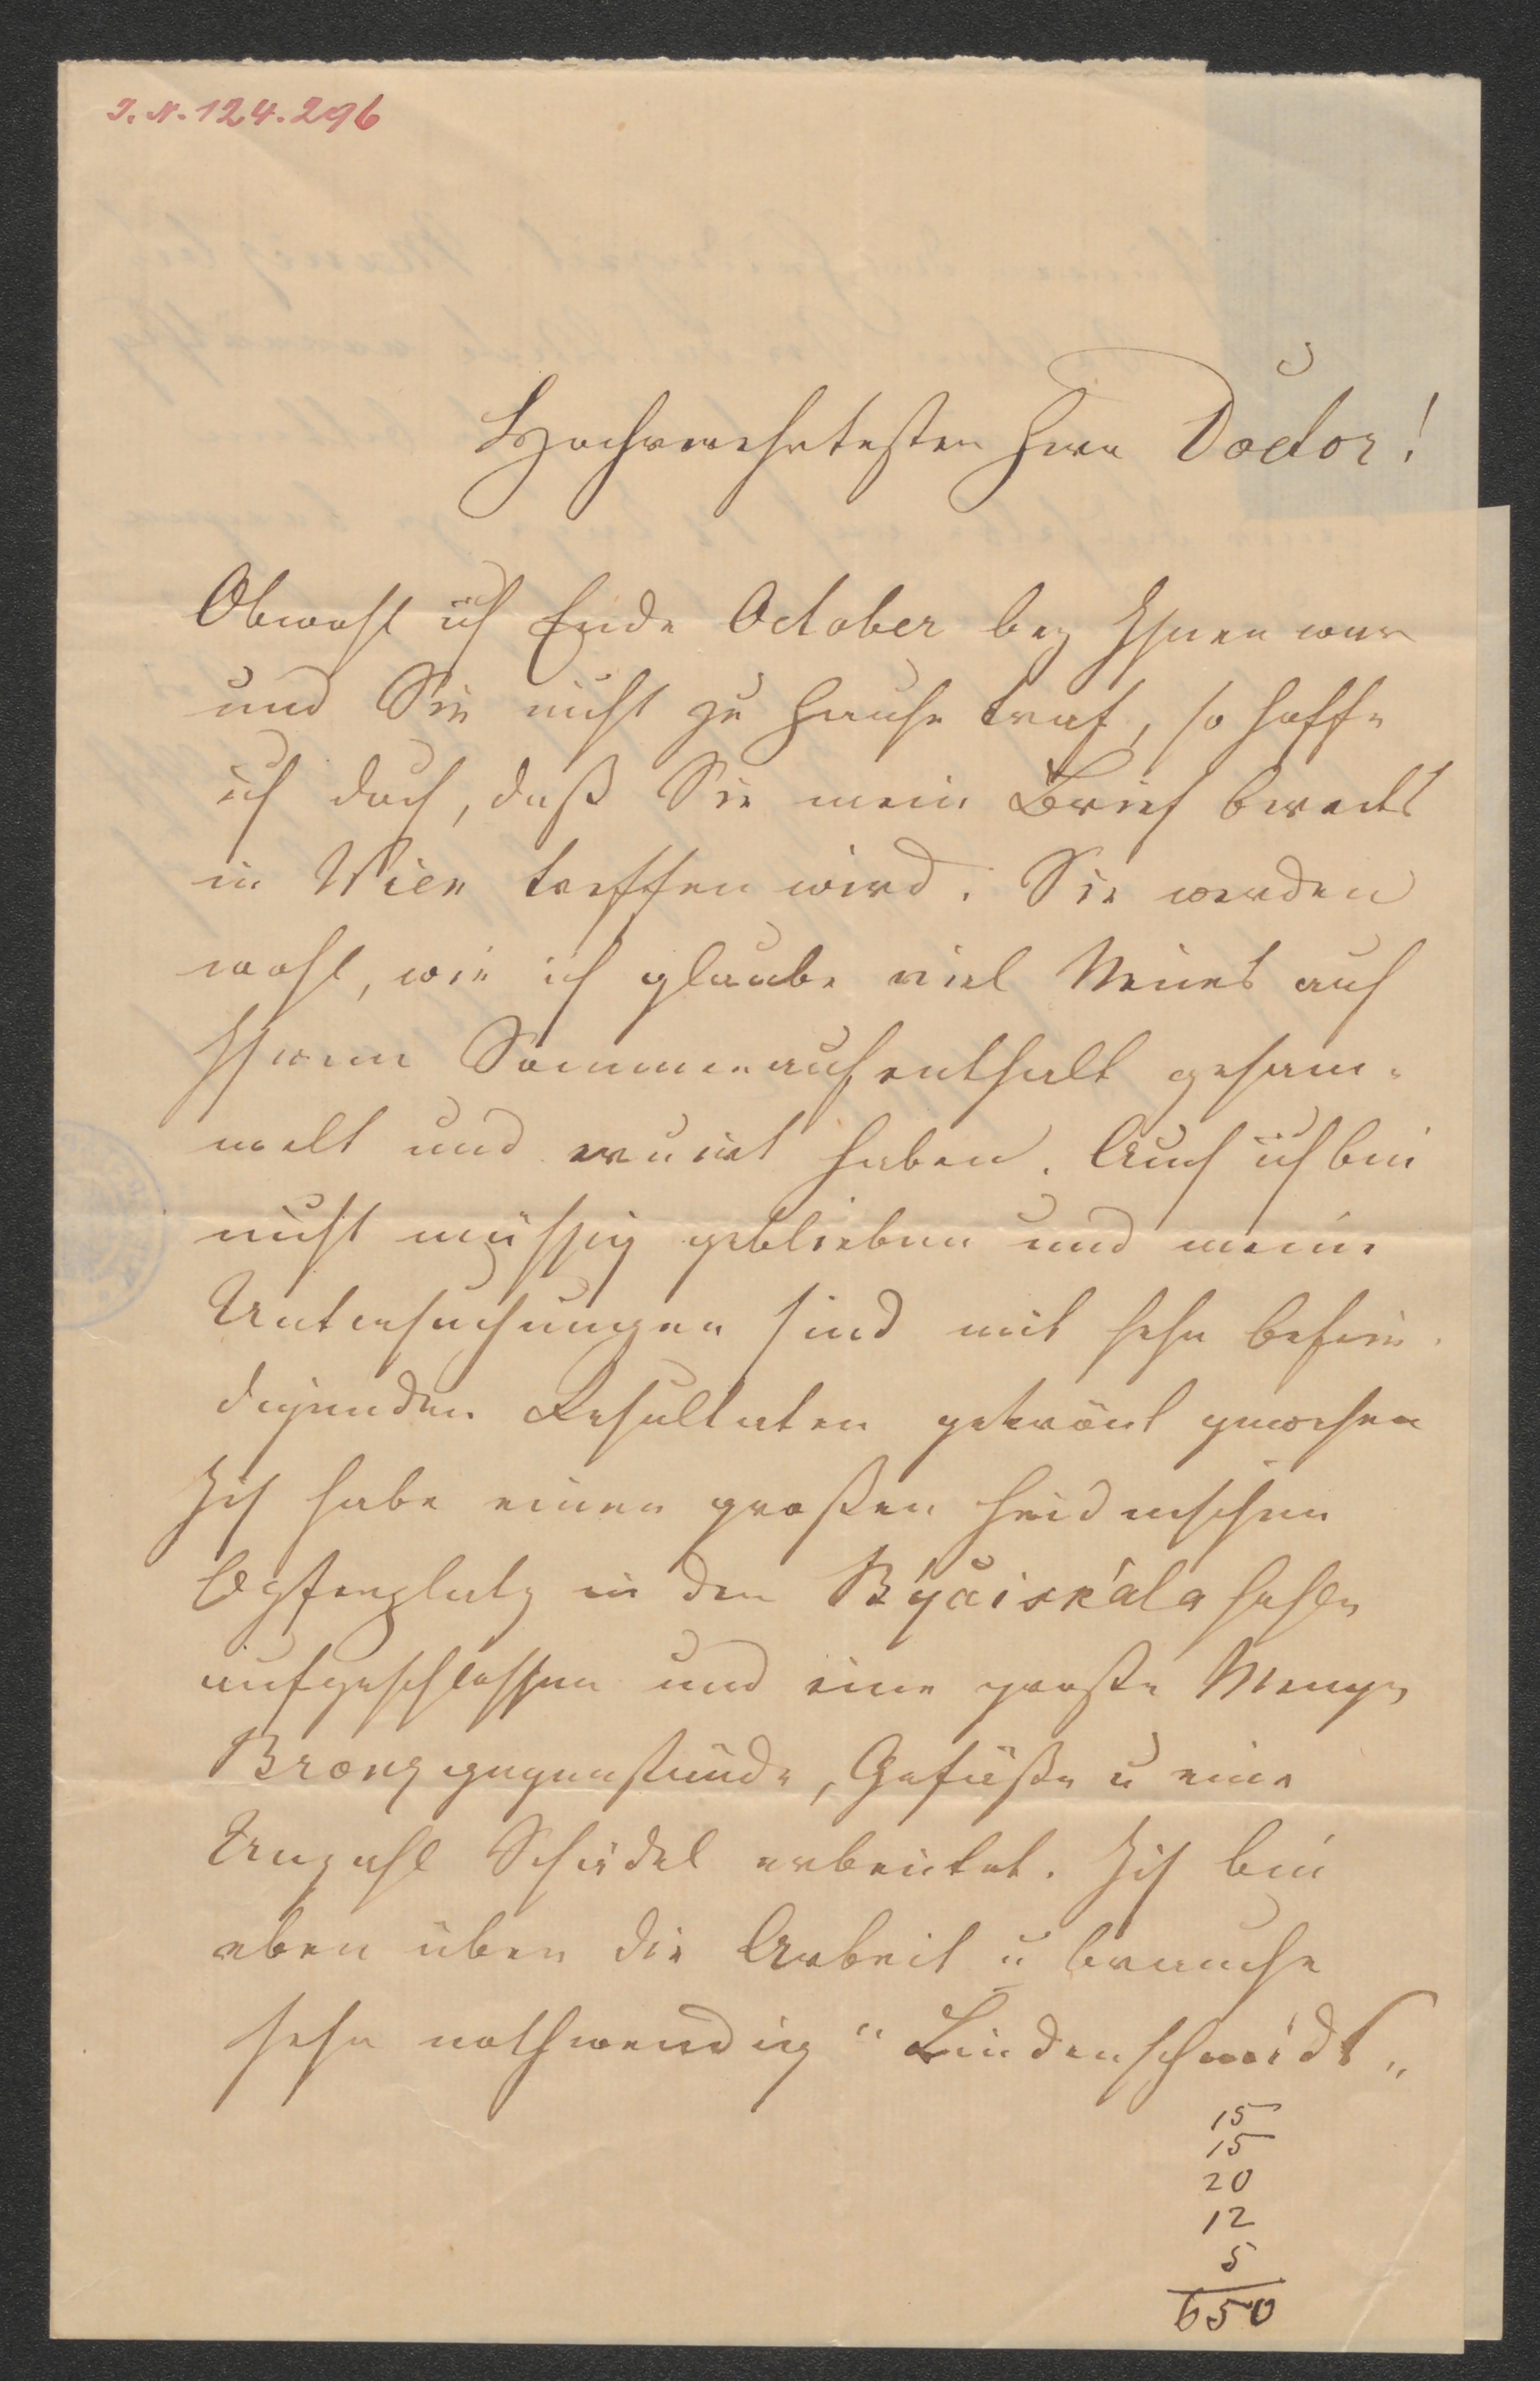 I. N. 124.296
Hochverehrtester Herr Doctor!
Obwohl ich Ende October bey Ihnen war
und Sie nicht zu Hause traf, so hoffe
ich doch, daß Sie mein Brief bereits
in Wien treffen wird. Sie werden
wohl, wie ich glaube viel Neues auf
Ihrem Sommeraufenthalt gesam-
melt und haben. Auch ich bin
nicht müssig geblieben und meine
Untersuchungen sind mit sehr befrie-
digenden Resultaten gekrönt gewesen
Ich habe einen großen heidnischen
Opferplatz in der Býčiskála höhle
aufgeschlossen und eine große Menge
Bronzgegenstände, Gefäße u eine
Unzahl Schädel erbeutet. Ich bin
eben über die Arbeit u brauche
sehr nothwendig "Lindenschmidt"
15
15
20
12
5
650